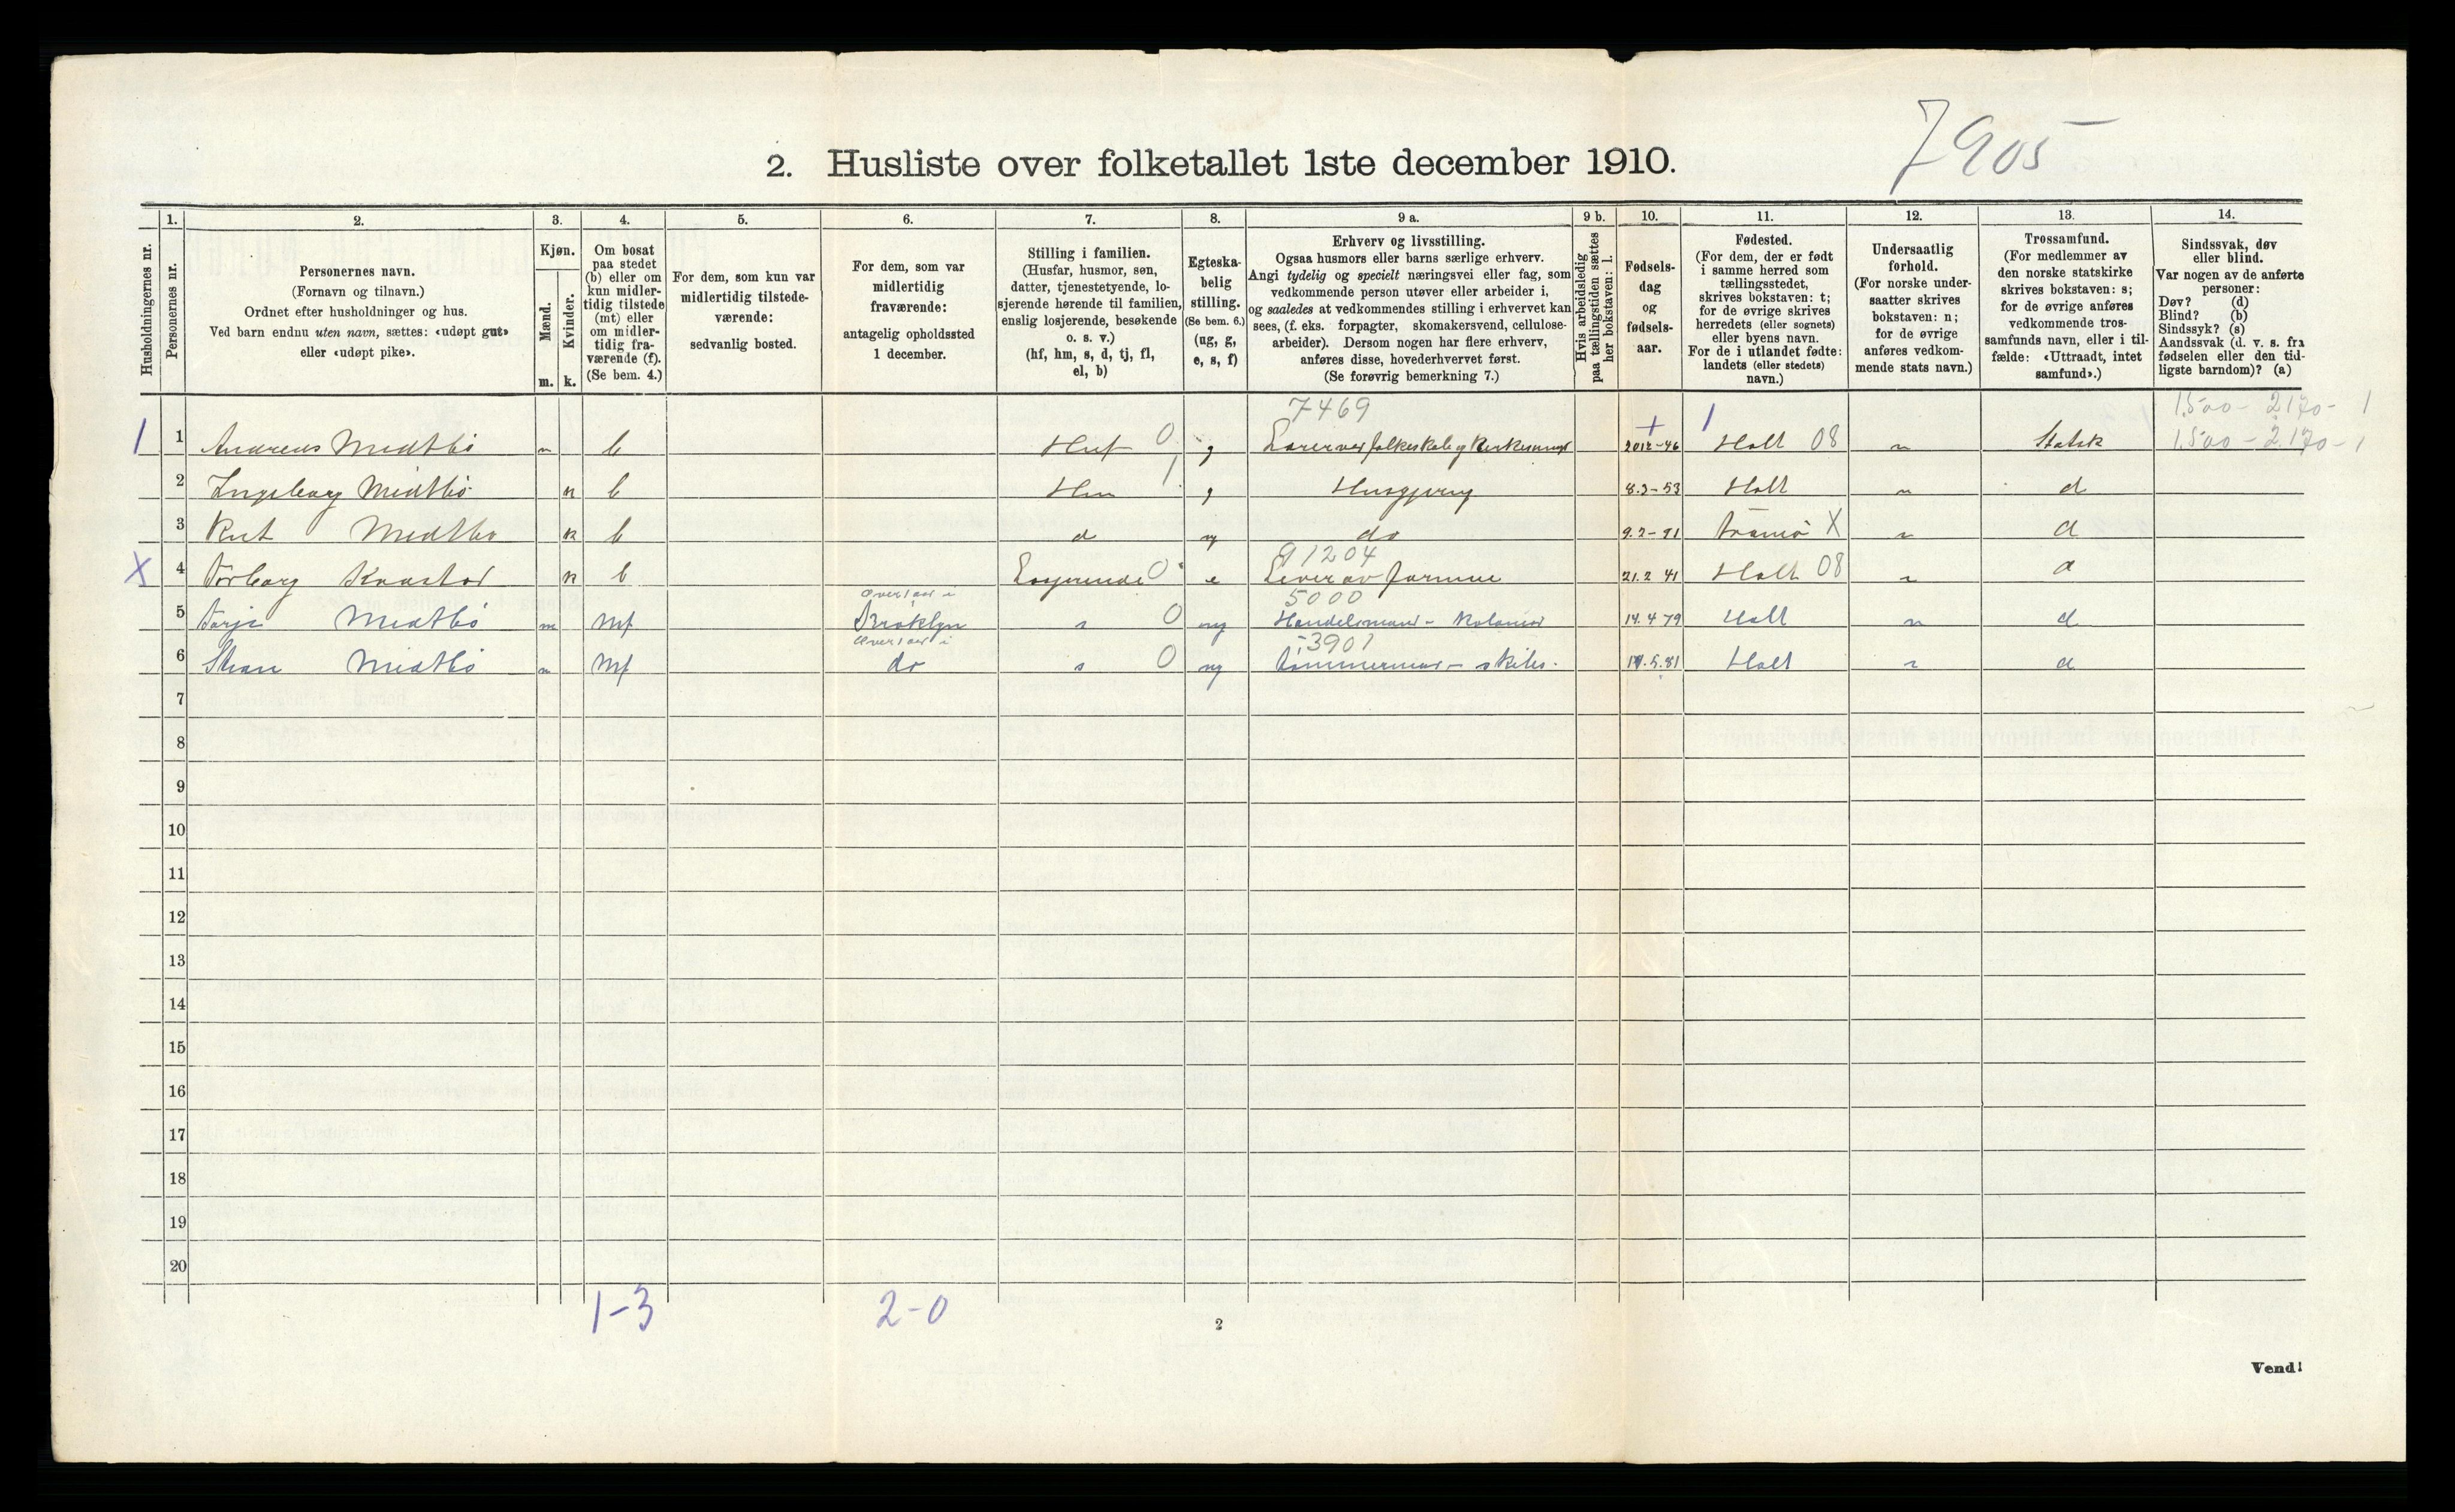 7905
2. Husliste over folketallet 1ste december 1910.
1. 2. 3. 4. 5. 6. 7. 8. 9 a. 9 b. 10. 11. 12. 13. 14.
Husholdningernes nr.
Personernes nr.
Personernes navn.
(Fornavn og tilnavn.)
Ordnet efter husholdninger og hus.
Ved barn endnu uten navn, sættes: «udøpt gut»
eller «udøpt pike».
Kjøn.
Mænd.
Kvinder.
m. k.
Om bosat
paa stedet
(b) eller om
kun midler-
tidig tilstede
(mt) eller
om midler-
tidig fra-
værende (f).
(Se bem. 4.)
For dem, som kun var
midlertidig tilstede-
værende:
sedvanlig bosted.
For dem, som var
midlertidig
fraværende:
antagelig opholdssted
1 december.
Stilling i familien.
(Husfar, husmor, søn,
datter, tjenestetyende, lo-
sjerende hørende til familien,
enslig losjerende, besøkende
o. s. v.)
(hf, hm, s, d, tj, fl,
el, b)
Egteska-
belig
stilling.
(Se bem. 6.)
(ug, g,
e, s, f)
Erhverv og livsstilling.
Ogsaa husmors eller barns særlige erhverv.
Angi tydelig og specielt næringsvei eller fag, som
vedkommende person utøver eller arbeider i,
og saaledes at vedkommendes stilling i erhvervet kan
sees, (f. eks. forpagter, skomakersvend, cellulose-
arbeider). Dersom nogen har flere erhverv,
anføres disse, hovederhvervet først.
(Se forøvrig bemerkning 7.)
Hvis arbeidsledig
paa tællingstiden sættes
her bokstaven: l.
Fødsels-
dag
og
fødsels-
aar.
Fødested.
(For dem, der er født
i samme herred som
tællingsstedet,
skrives bokstaven: t;
for de øvrige skrives
herredets (eller sognets)
eller byens navn.
For de i utlandet fødte:
landets (eller stedets)
navn.)
Undersaatlig
forhold.
(For norske under-
saatter skrives
bokstaven: n;
for de øvrige
anføres vedkom-
mende stats navn.)
Trossamfund.
(For medlemmer av
den norske statskirke
skrives bokstaven: s;
for de øvrige anføres
vedkommende tros-
samfunds navn, eller i til-
fælde: «Uttraadt, intet
samfund».)
Sindssvak, døv
eller blind.
Var nogen av de anførte
personer:
Døv? (d)
Blind? (b)
Sindssyk? (s)
Aandssvak (d. v. s. fra
fødselen eller den tid-
ligste barndom)? (a)
7469 1500 - 2170 - 1
1 1 Andreas Midtbö m b Huf 0 g 2012-46 Holt 08 n Statsk 1500 - 2170 - 1
2 Ingeborg Midtbö k b Hm 1 g Husgjerng 8.3-53 Holt n d
3 Rut Midtbö k b d ug do 9.2-91 Tromö X n d
91204
X 4 Torborg k b Losjerende 0 e Lever av formue 21.2 41 Holt 08 n d
5000
5 Tarje Midtbö m mf Brooklyn s 0 ug Handelsmand - Kolonial 14.4 79 Holt n d
3901
6 Midtbö m mf do s 0 ug Tömmermand - 5.81 Holt n d
7
8
9
10
11
12
13
14
15
16
17
18
19
20
1-3 2-0
2
Vend!